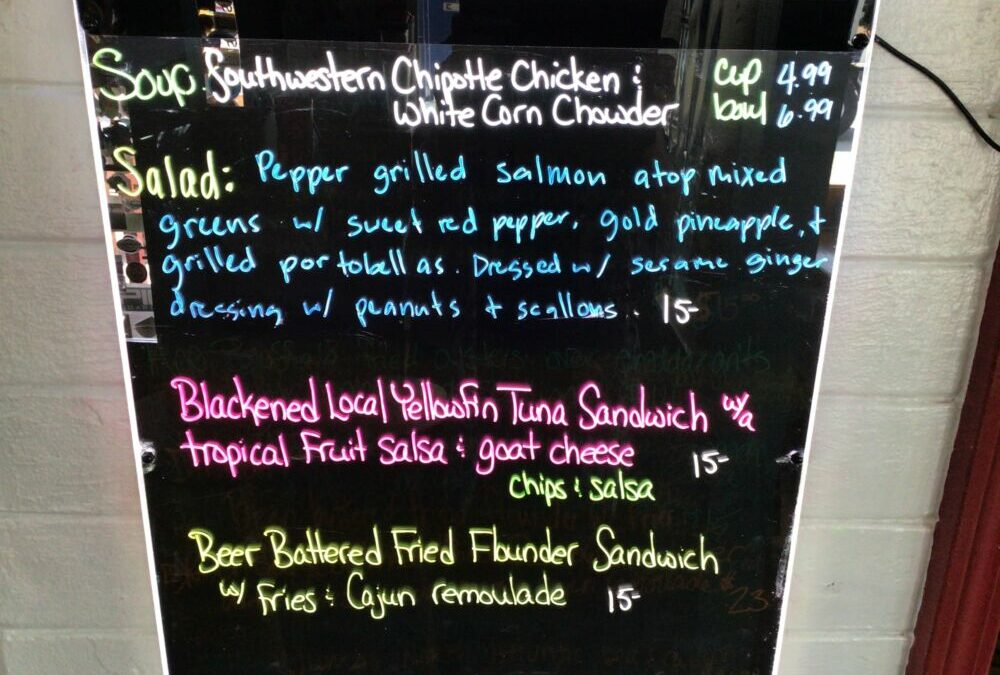 Soup Southwestern Chipotle Chicken & cup 4.99
White Corn Chowder bowl 6.99
Salad: Pepper grilled salmon atop mixed
greens w/ sweet red pepper, gold pineapple, &
grilled portobellas. Dressed w/ sesame ginger
dressing w/ peanuts & scallons. 15-
Blackened Local Yellowfin Tuna Sandwich w/a
tropical Fruit salsa & goat cheese 15-
chips & salsa
Beer Battered Fried Flounder Sandwich
w/ Fries & Cajun remoulade 15-
23